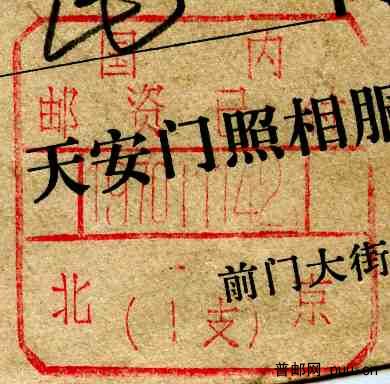 国内
邮资已
天安门照相服
前门大街
北京
(1支)
普邮网